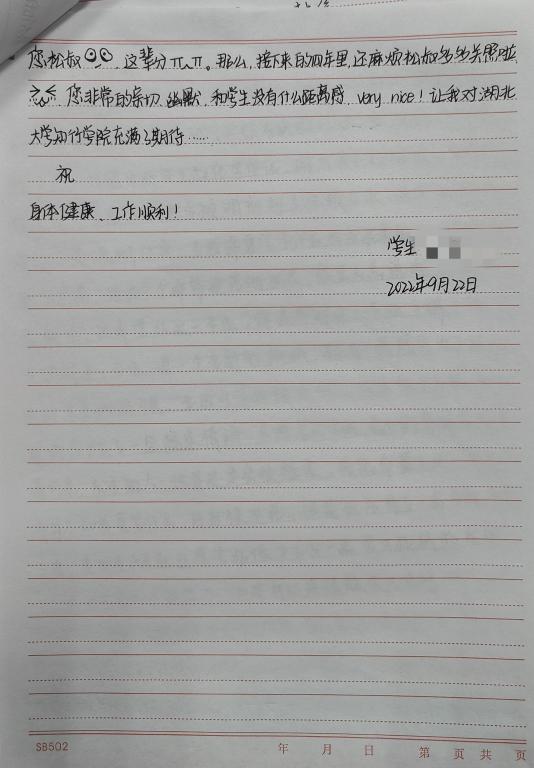 您松叔，这辈分π_π。那么，接下来的四年里，还麻烦松叔多多关照啦
您非常的亲切、幽默，和学生没有什么距离感，very nice！让我对湖北
大学知行学院充满了期待……
祝
身体健康、工作顺利！
学生
2022年9月22日
SB502 年 月 日 第 页 共 页